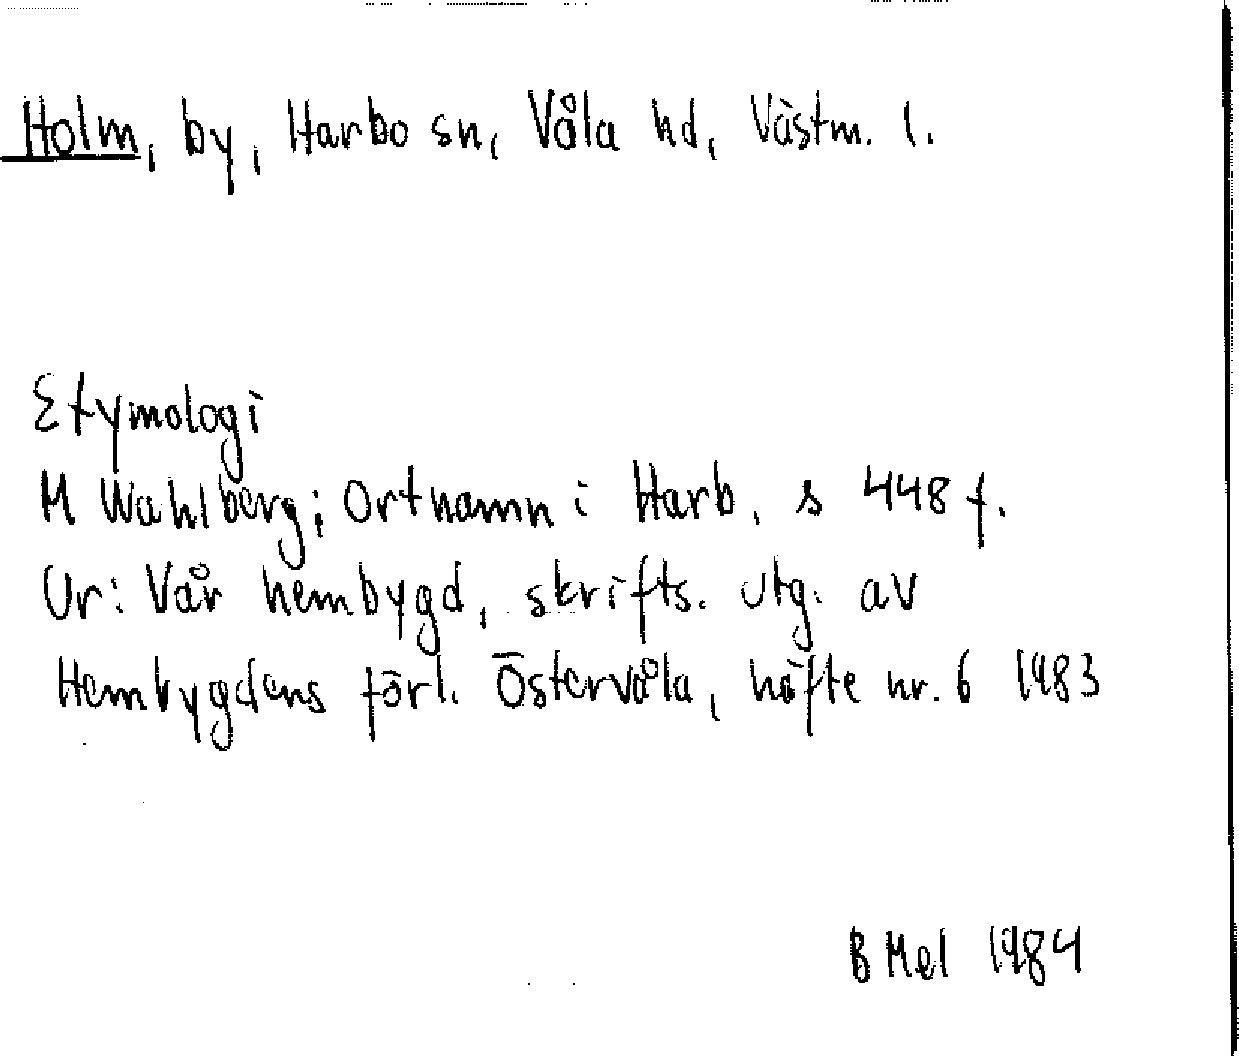 Holm, by, Harbo sn, Våla hd, Västm. l.
Etymologi
M Wahlberg; Ortnamn i Harb. s 448 f.
Ur: Vår hembygd, skrifts. utg. av
Hembygdens förl. Östervåla, häfte nr. 6 1983
B Mel 1984